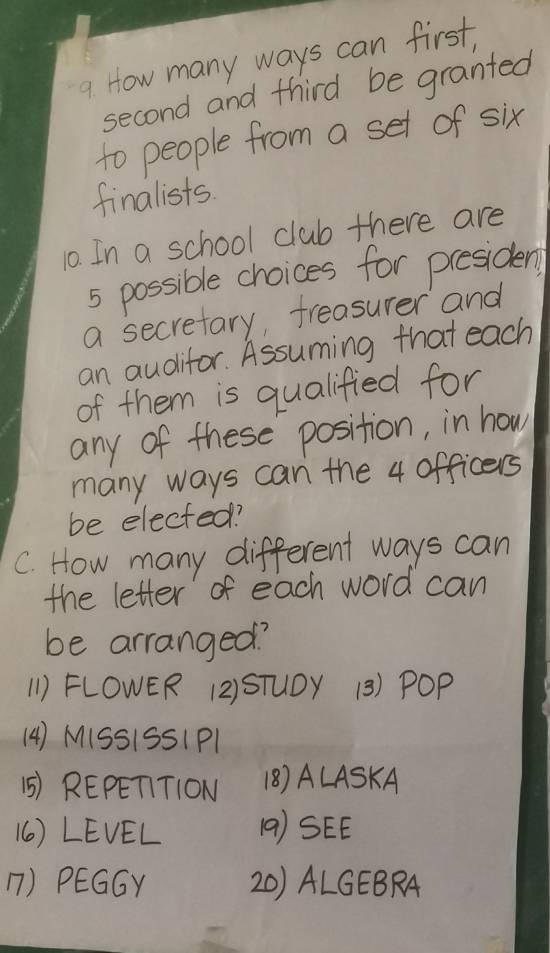 9. How many ways can first,
second and third be granted
to people from a set of six
finalists.
10. In a school club there are
5 possible choices for president,
a secretary, treasurer and
an auditor. Assuming that each
of them is qualified for
any of these position, in how
many ways can the 4 officers
be elected?
C. How many different ways can
the letter of each word can
be arranged?
11) FLOWER 12) STUDY 13) POP
14) MISSISSIPI
15) REPETITION 18) ALASKA
16) LEVEL 19) SEE
17) PEGGY 20) ALGEBRA